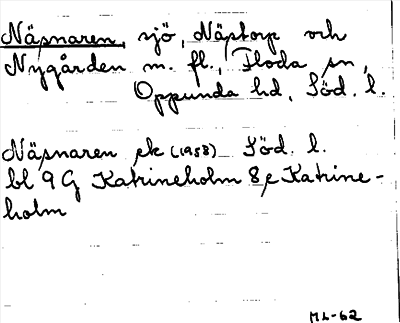 Näsnaren, sjö, Nästorp och
Nygården m. fl., Floda sn,
Oppunda hd, Söd. l.
Näsnaren ek (1958) Söd. l.
bl 9 G Katrineholm 8 e Katrine-
holm
ML-62